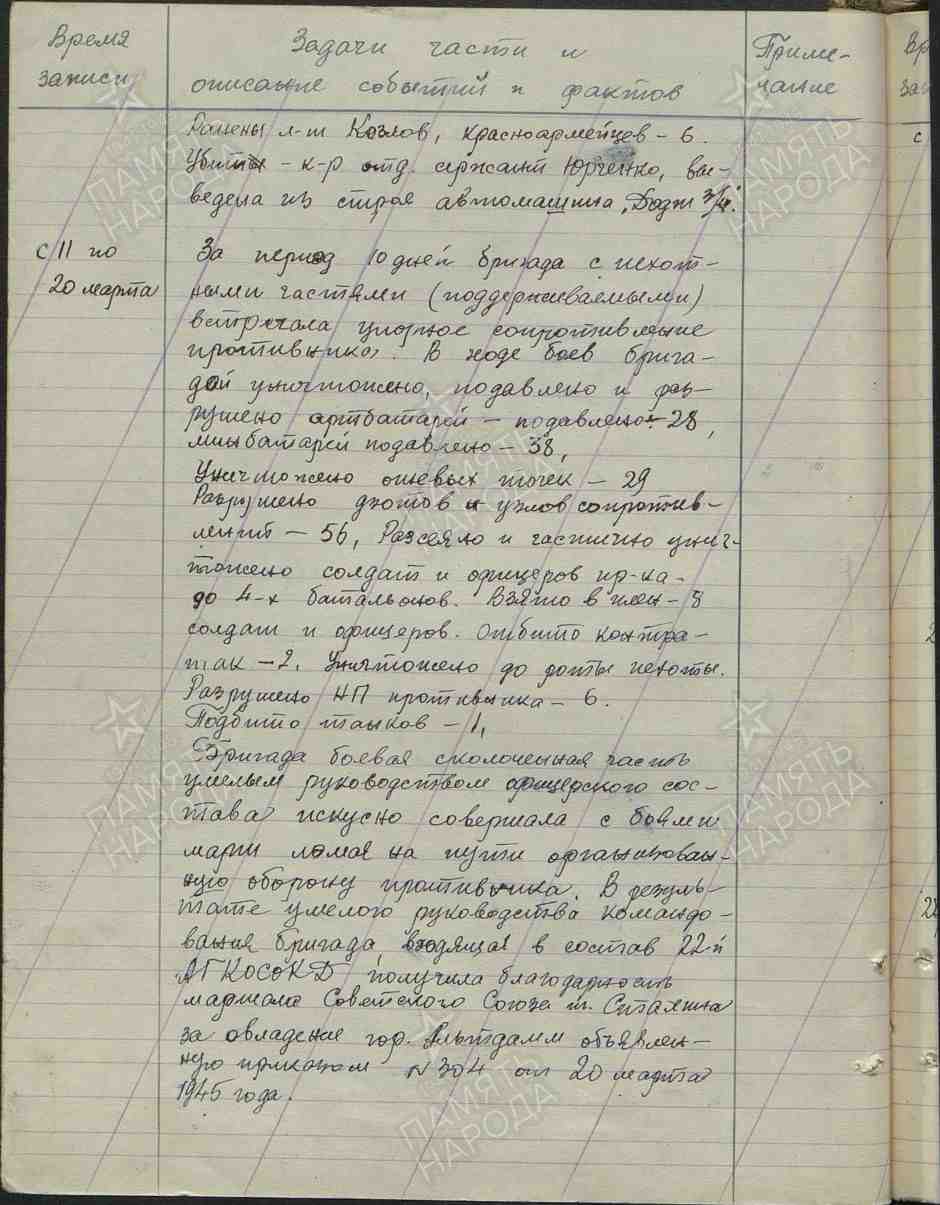 Время записи
Задачи части и описание событий и фактов
Приме-
чание
Ранены л-т Козлов, красноармейцев – 6.
Убиты – к-р отд. сержант Юрченко, вы-
ведена из строя автомашина "Додж 3/4".
с 11 по
20 марта
За период 10 дней бригада с пехот-
ными частями (поддерживаемыми)
встречала упорное сопротивление
противника. В ходе боев брига-
дой уничтожено, подавлено и раз-
рушено артбатарей – подавлено – 28,
минбатарей подавлено – 38,
Уничтожено огневых точек – 29
Разрушено дзотов и узлов сопротив-
ления – 56, Разсеяно и частично унич-
тожено солдат и офицеров пр-ка –
до 4-х батальонов. Взято в плен – 8
солдат и офицеров. Отбито контра-
так – 2. Уничтожено до роты пехоты.
Разрушено НП противника – 6.
Подбито танков – 1,
Бригада боевая сколоченная часть
умелым руководством офицерского сос-
тава искусно совершала с боями
марш ломая на пути организован-
ную оборону противника. В резуль-
тате умелого руководства командо-
вания бригада, входящая в состав 22-й
АПКОСОКД получила благодарность
маршала Советского Союза т. Сталина
за овладение гор. Альтдамм объявлен-
ную приказом №304 от 20 марта
1945 года.
ПАМЯТЬ
НАРОДА
ПАМЯТЬ
НАРОДА
ПАМЯТЬ
НАРОДА
ПАМЯТЬ
НАРОДА
ПАМЯТЬ
НАРОДА
ПАМЯТЬ
НАРОДА